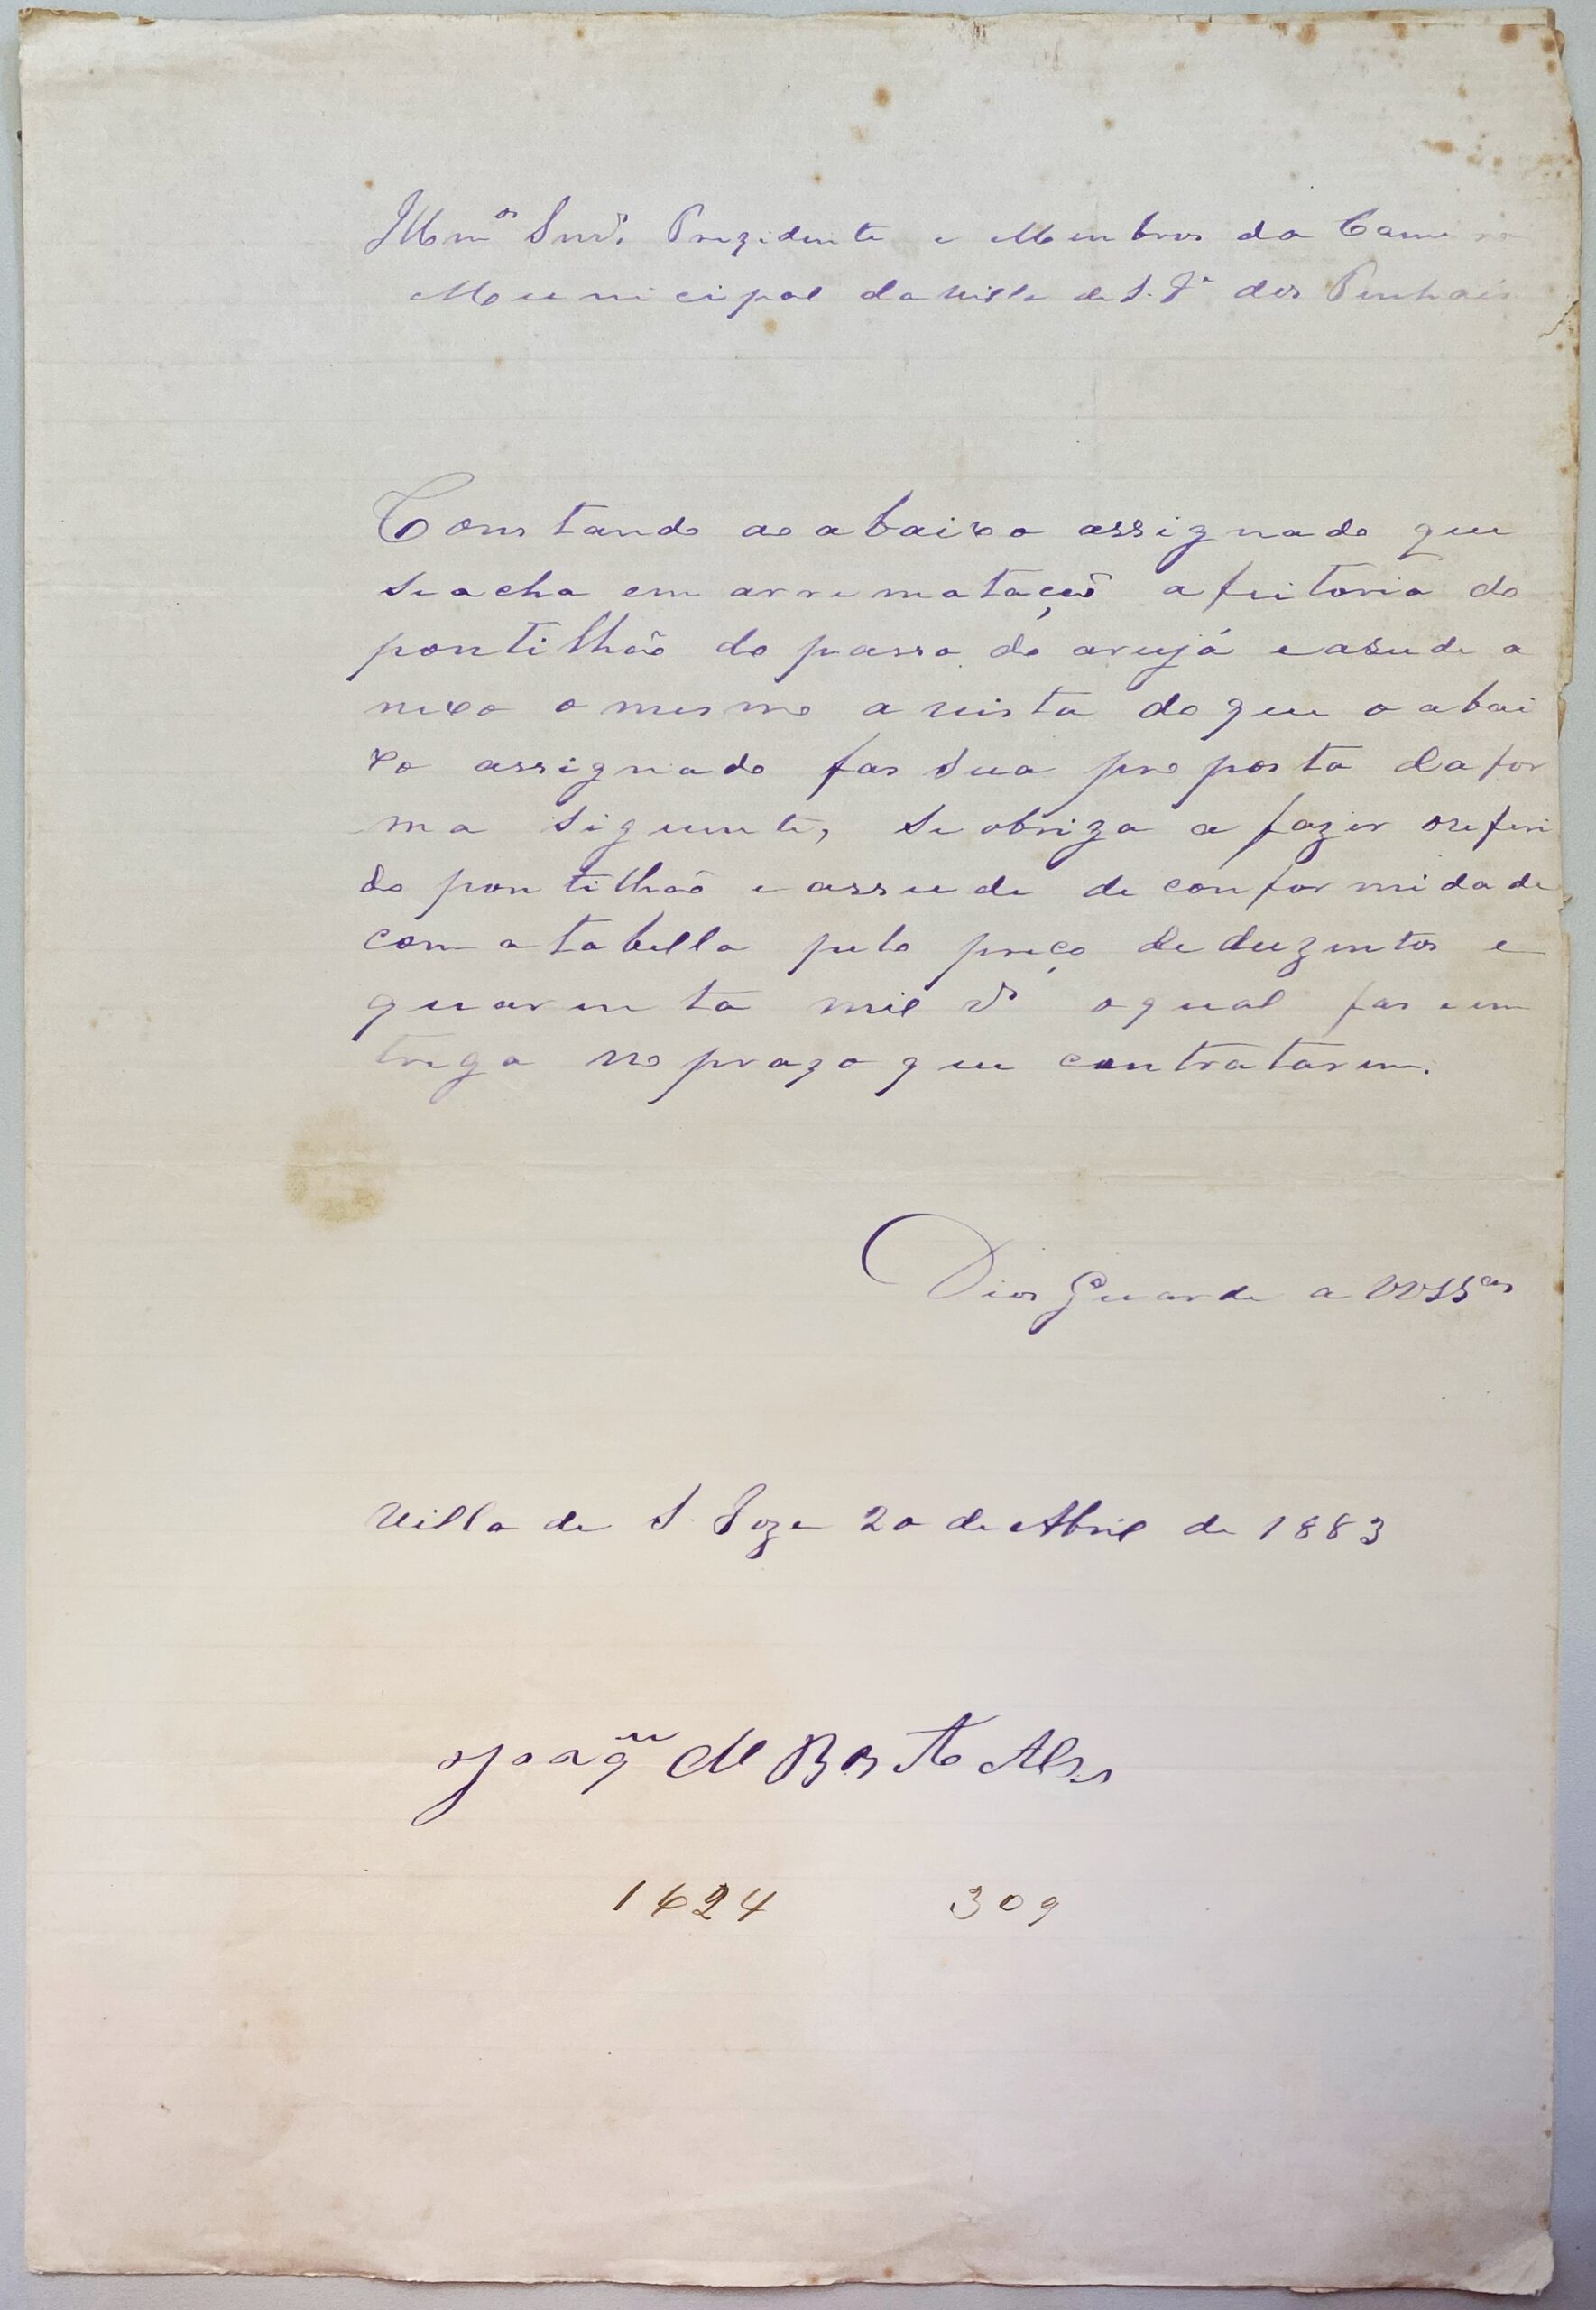 Illmos Snrs. Prezidente e Membros da Camera
Municipal da Villa de S. Je dos Penhais
Constando ao abaixo assignado que
se acha em arrematação a feitoria do
pontilhão do passo do arujá e asude a
nexo o mesmo a vista do que o abai
xo assignado fas sua proposta da for
ma siguinte, se obriga a fazer o referi
do pontilhão e assude de conformidade
com a tabella pelo preço de duzentos e
quarenta mil rs o qual fas e em
trega no prazo que contratarem.
Dios Guarde a VVSSas
Villa de S. Joze 20 de Abril de 1883
Joaqm
1624 309